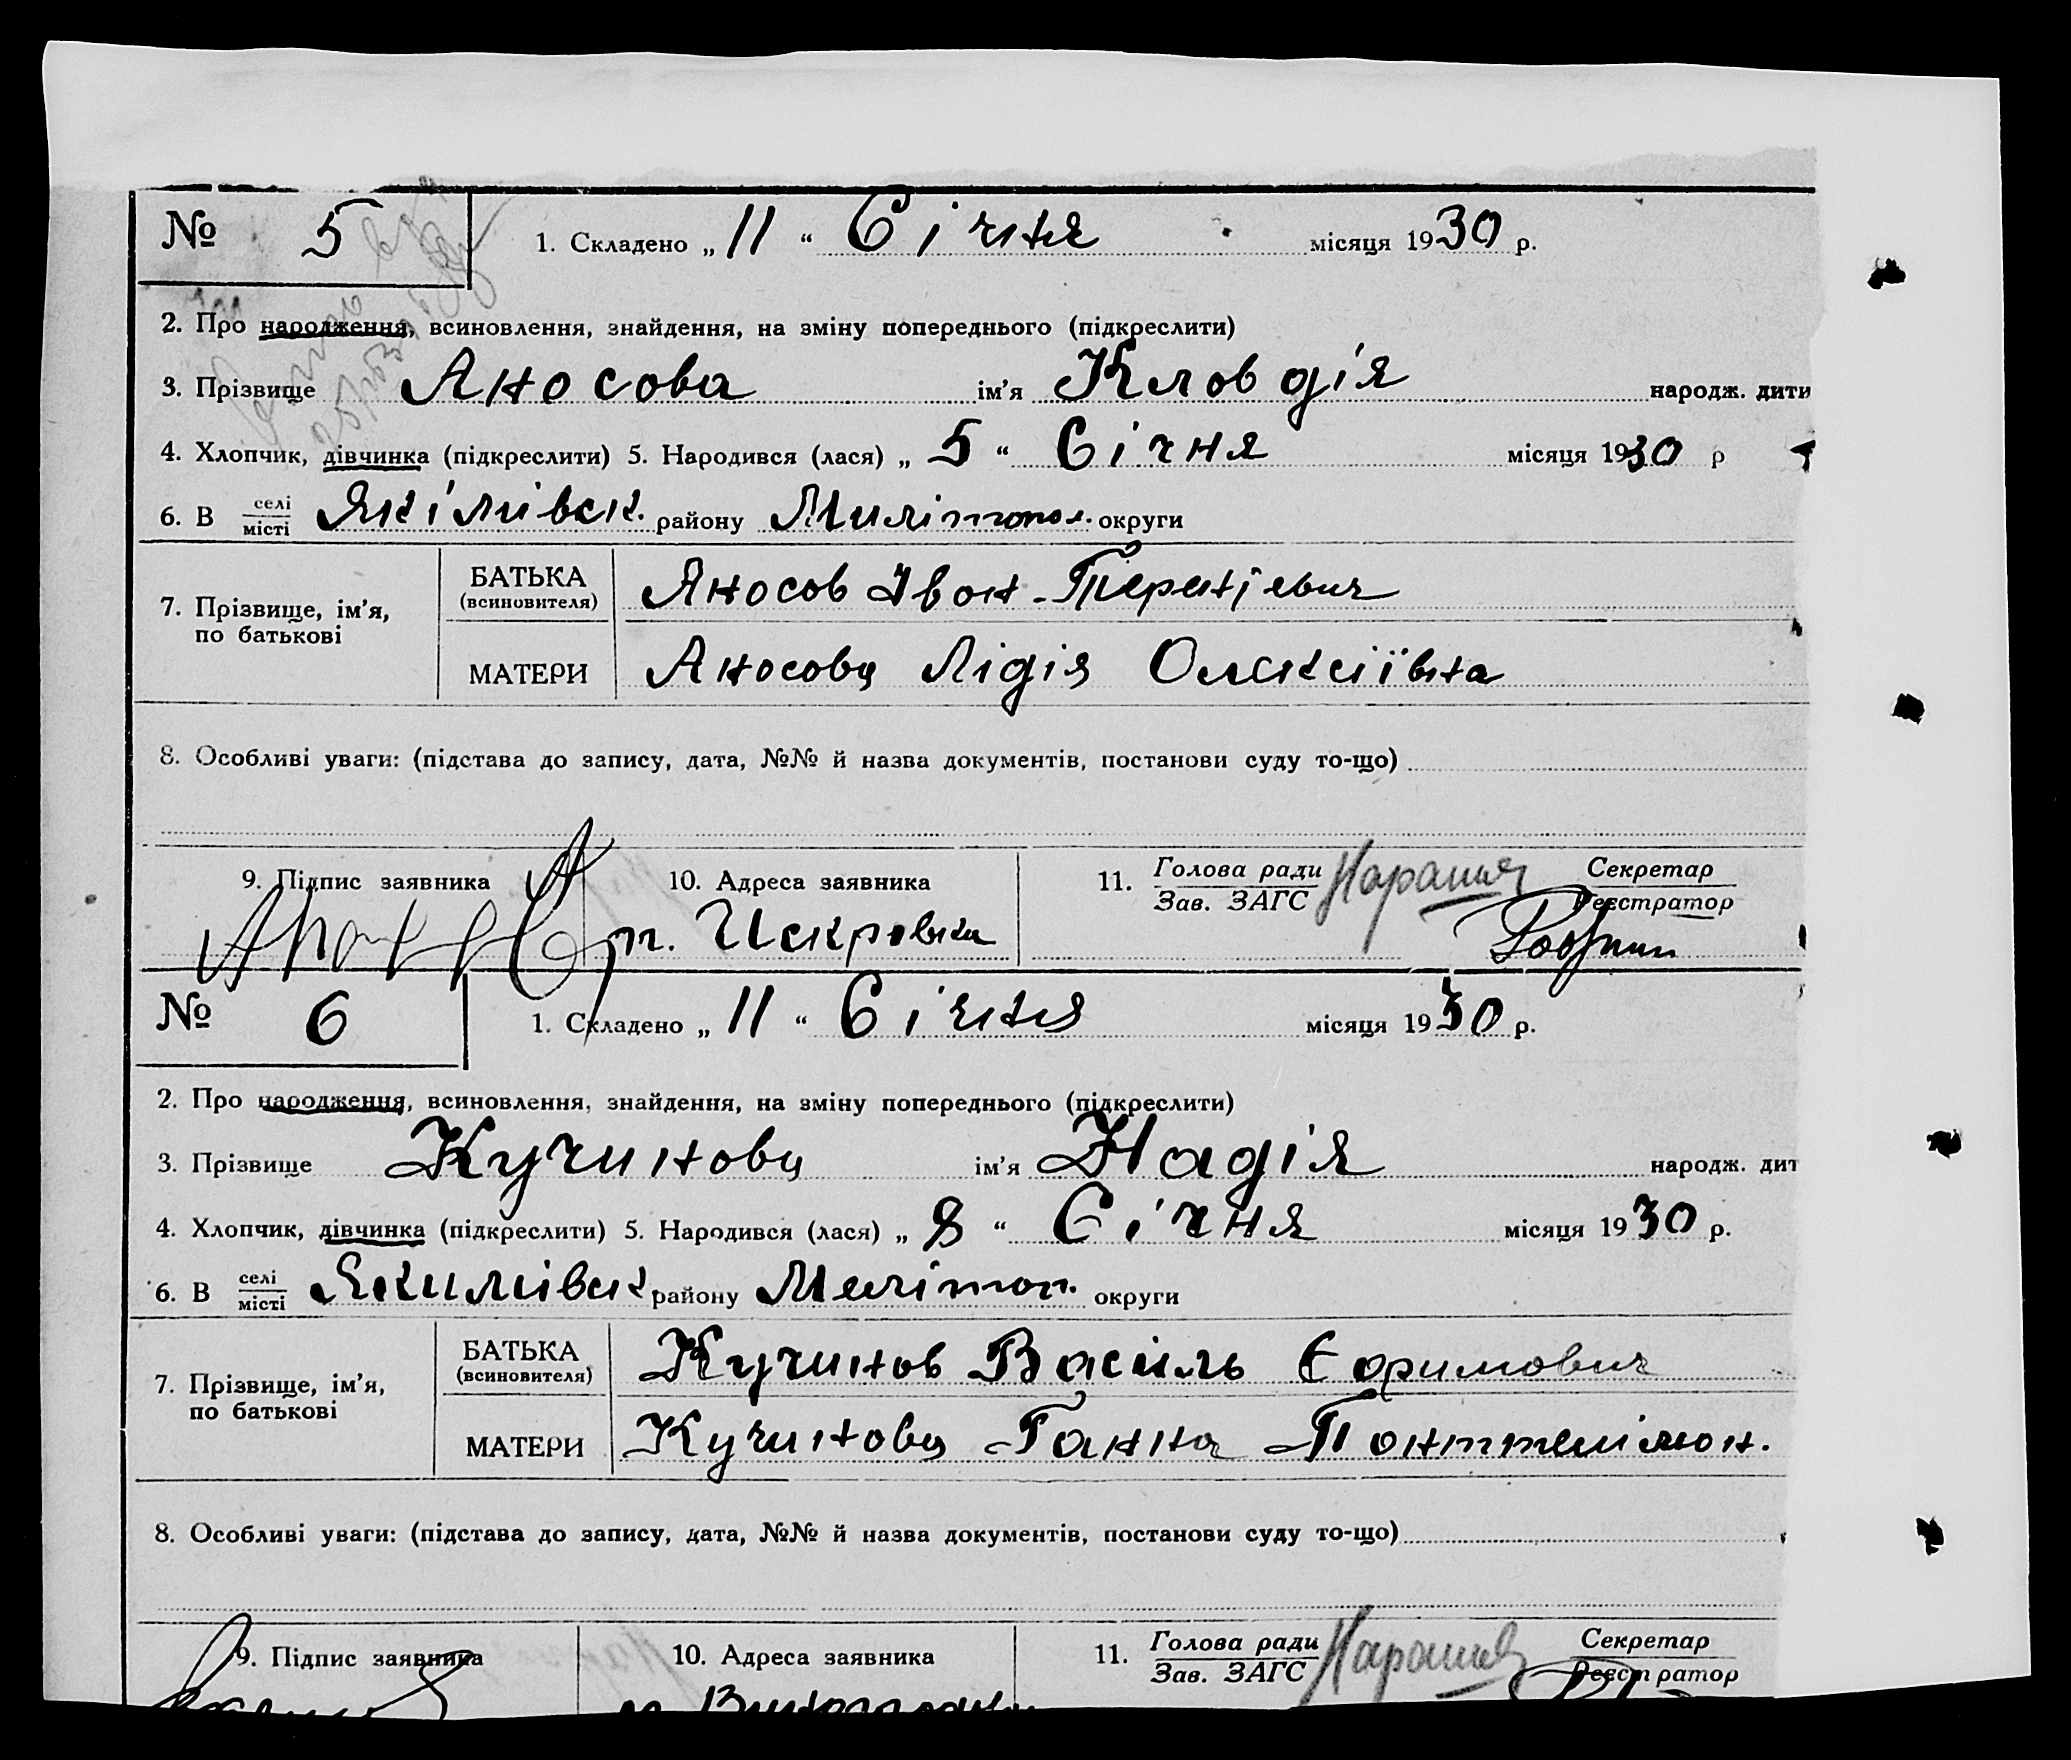 № 5 1. Складено „ 11 “ Січня місяця 1930 р.
2. Про народження, всиновлення, знайдення, на зміну попереднього (підкреслити)
3. Прізвище Аносова ім’я Кловдія народж. дити
4. Хлопчик, дівчинка (підкреслити) 5. Народився (лася) „ 5 “ Січня місяця 1930 р
6. В селі/місті Якімівск. району Милітопол. округи
7. Прізвище, ім’я, по батькові
БАТЬКА (всиновителя) Аносов Іван Терентіевич
МАТЕРИ Аносова Лідія Олексіївна
8. Особливі уваги: (підстава до запису, дата, №№ й назва документів, постанови суду то-що)
9. Підпис заявника 10. Адреса заявника 11. Голова ради Секретар
Зав. ЗАГС Реєстратор
п. Искровка
№ 6 1. Складено „ 11 “ Січня місяця 1930 р.
2. Про народження, всиновлення, знайдення, на зміну попереднього (підкреслити)
3. Прізвище Кучинова ім’я Надія народж. дит
4. Хлопчик, дівчинка (підкреслити) 5. Народився (лася) „ 8 “ Січня місяця 1930 р.
6. В селі/місті Якимівск району Мелітоп. округи
7. Прізвище, ім’я, по батькові
БАТЬКА (всиновителя) Кучинов Василь Єфимович
МАТЕРИ Кучинова Ганна Понттелімон.
8. Особливі уваги: (підстава до запису, дата, №№ й назва документів, постанови суду то-що)
9. Підпис заявника 10. Адреса заявника 11. Голова ради Секретар
Зав. ЗАГС Реєстратор